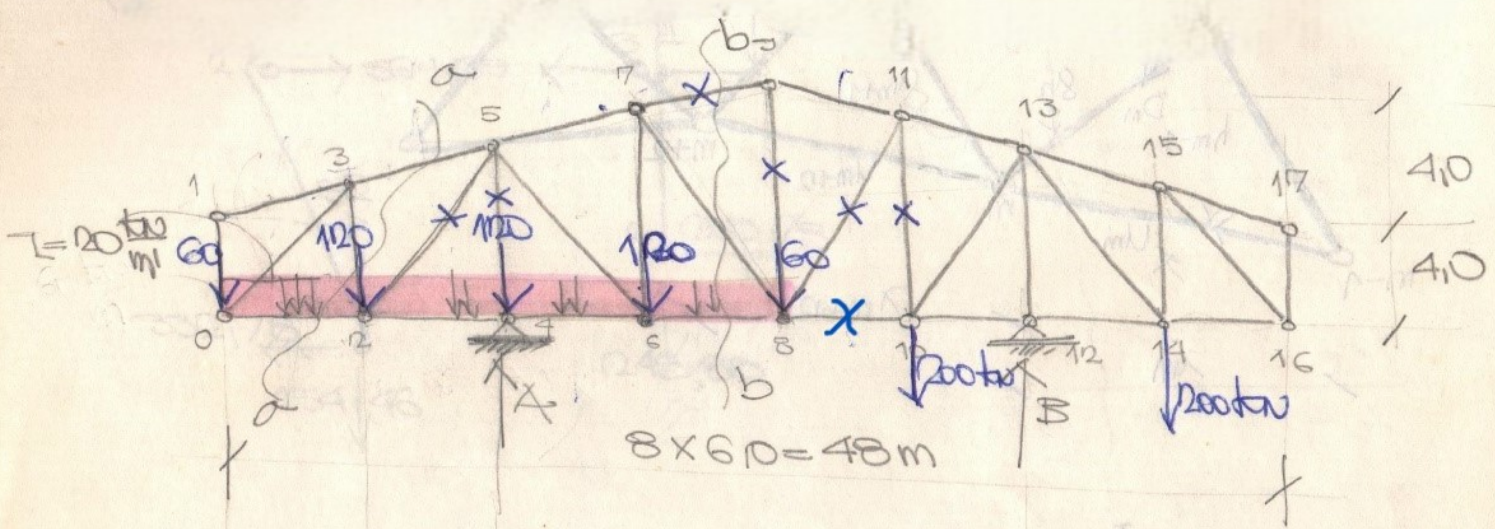 b
a
7
11
5
13
3
15
1
17
4,0
z=20 kN/m'
60
120
120
120
60
4,0
0
2
4
6
8
10
12
14
16
200kN
200kN
a
A
b
B
8x6,0=48m